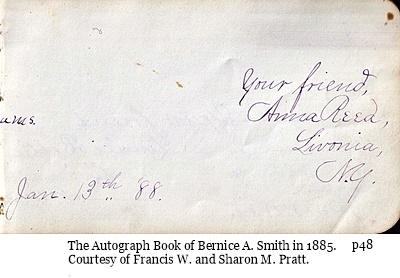 Your friend,
Anna Reed,
Livonia,
N.Y.
Jan. 13th '88.
The Autograph Book of Bernice A. Smith in 1885. p48
Courtesy of Francis W. and Sharon M. Pratt.